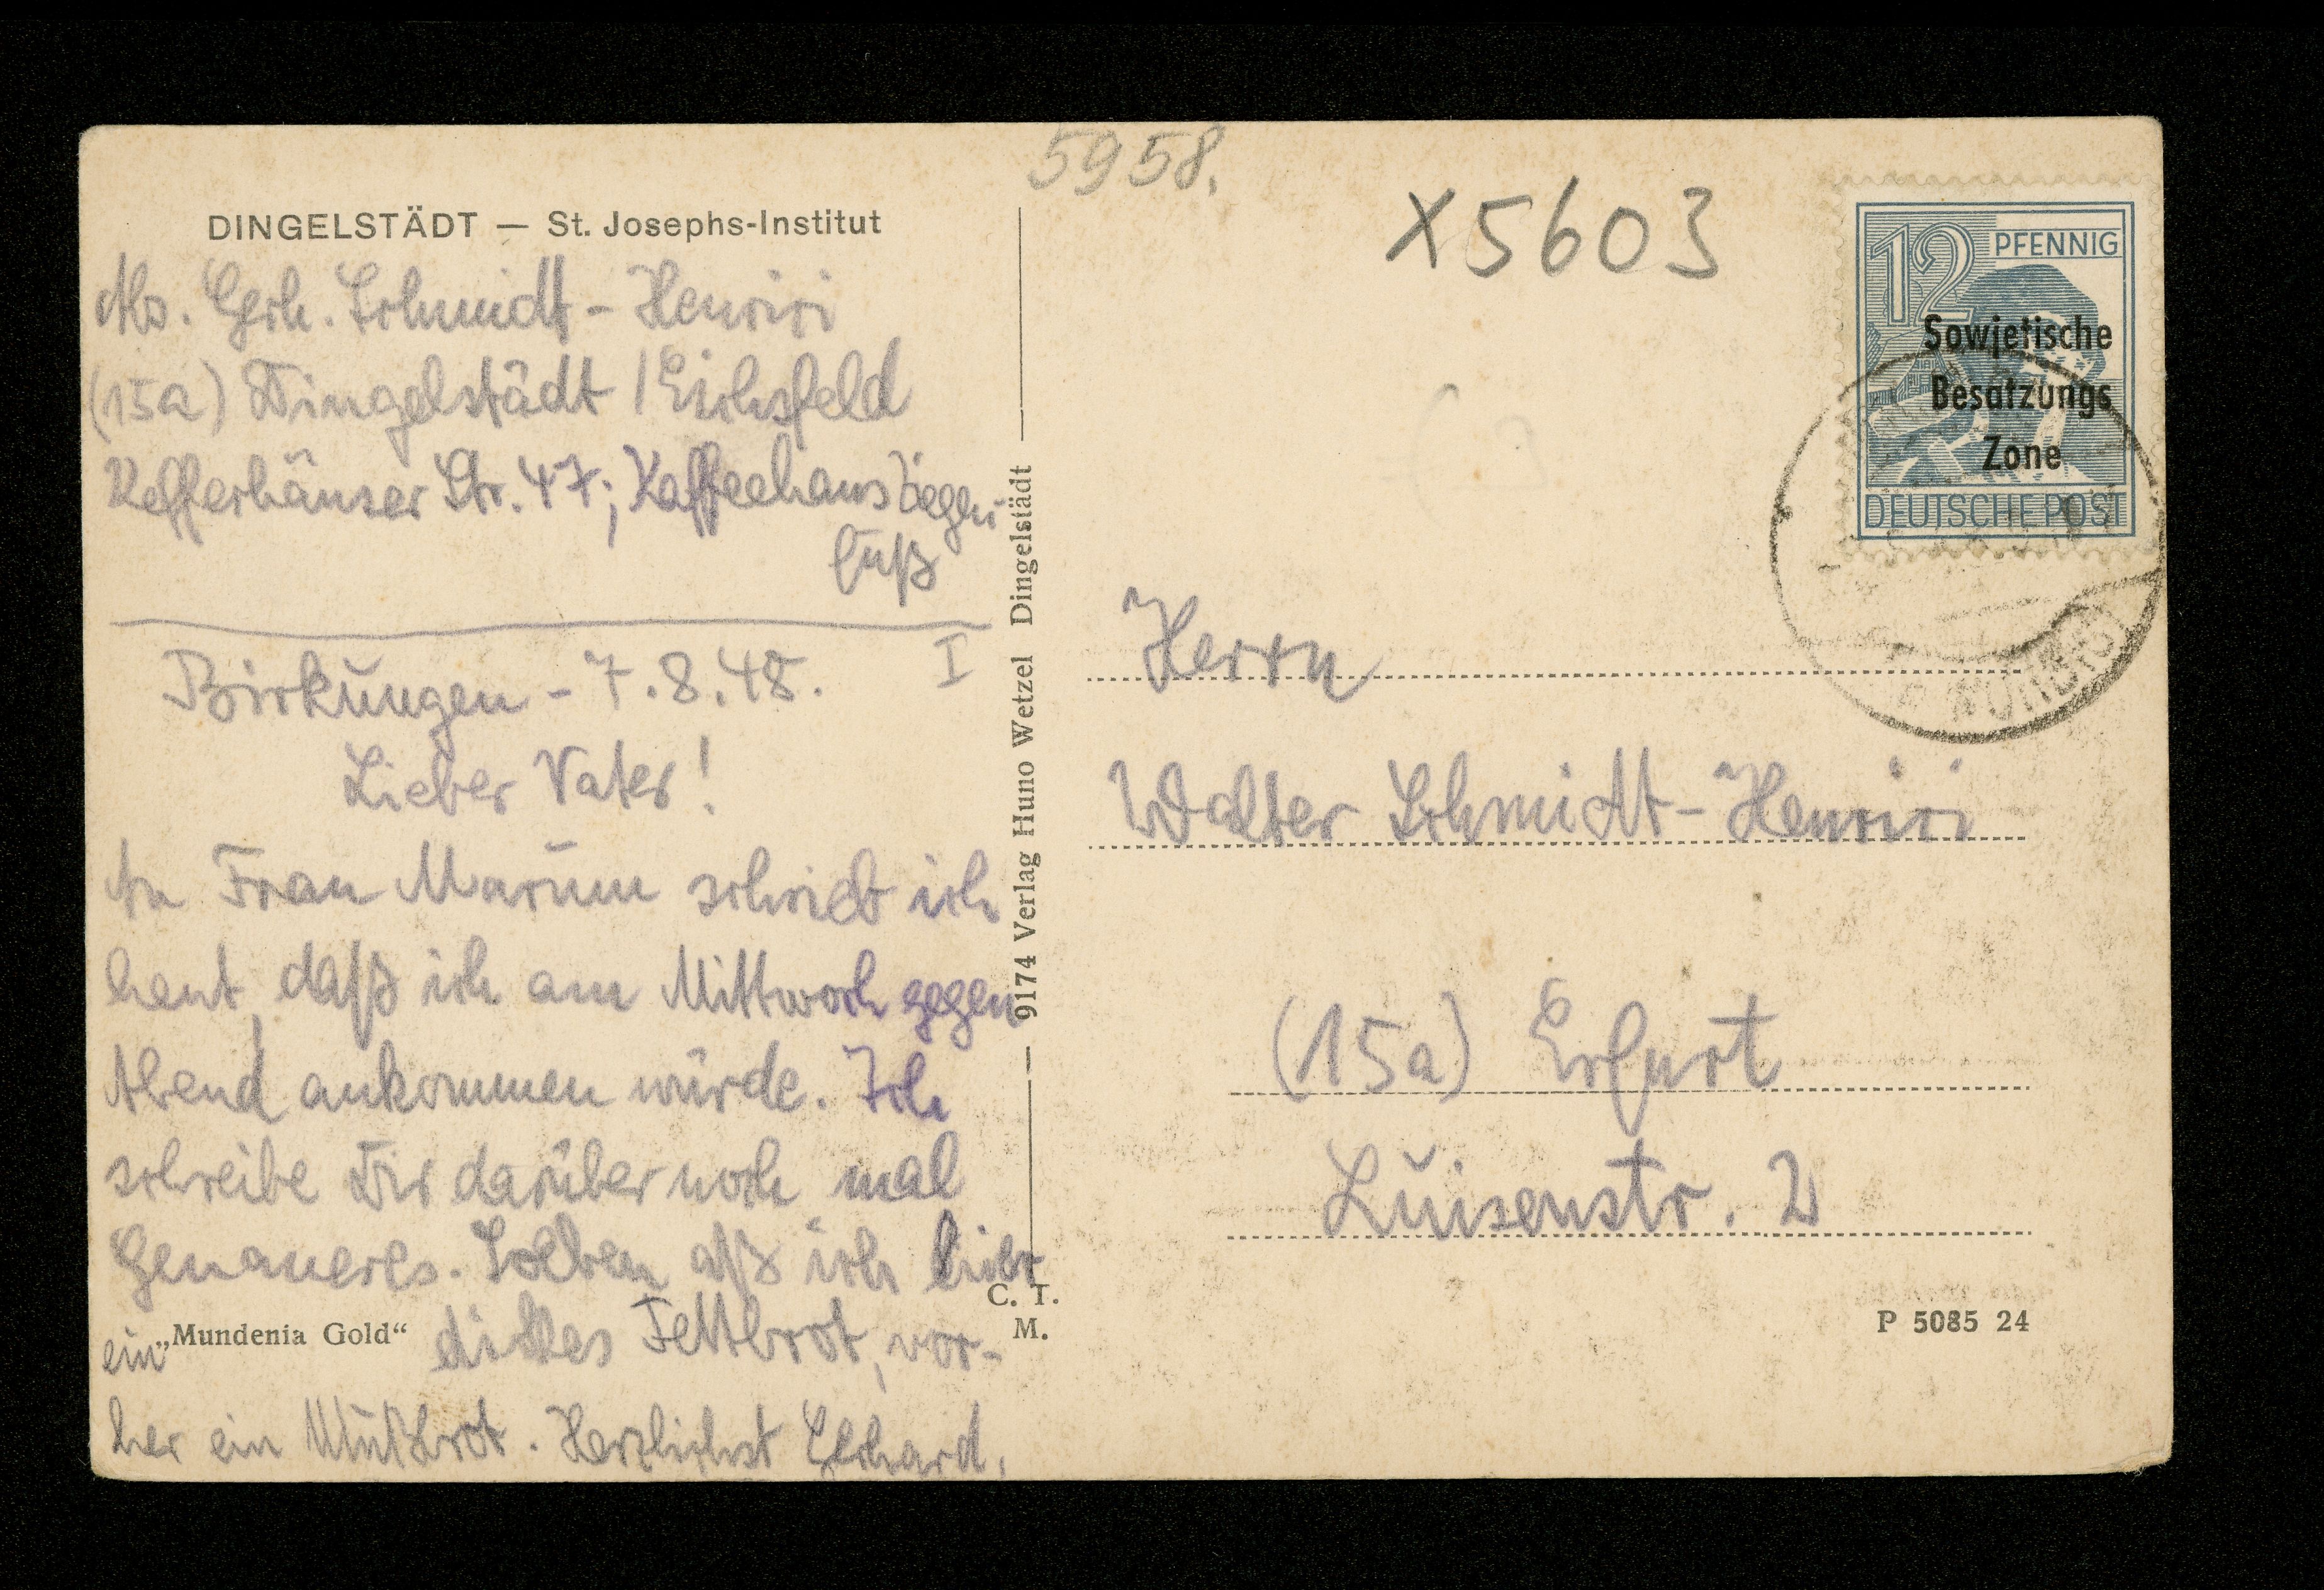 5958.
X5603
DINGELSTÄDT — St. Josephs-Institut
Abs. Gerh. Schmidt-Henrici
(15a) Dingelstädt / Eichsfeld
Kefferhäuser Str. 47; Kaffeehaus Ziegen-
fuß
Birkungen - 7.8.48. I
Lieber Vater!
An Frau Marum schrieb ich
heut, daß ich am Mittwoch gegen
Abend ankommen würde. Ich
schreibe Dir darüber noch mal
Genaueres. Soeben aß ich hier
ein dickes Fettbrot, vor-
her ein Mußbrot. Herzlichst Gerhard.
„Mundenia Gold“
9174 Verlag Huno Wetzel Dingelstädt
C. T.
M.
12 PFENNIG
Sowjetische
Besatzungs
Zone
DEUTSCHE POST
Herrn
Walter Schmidt-Henrici
(15a) Erfurt
Luisenstr. 2
P 5085 24